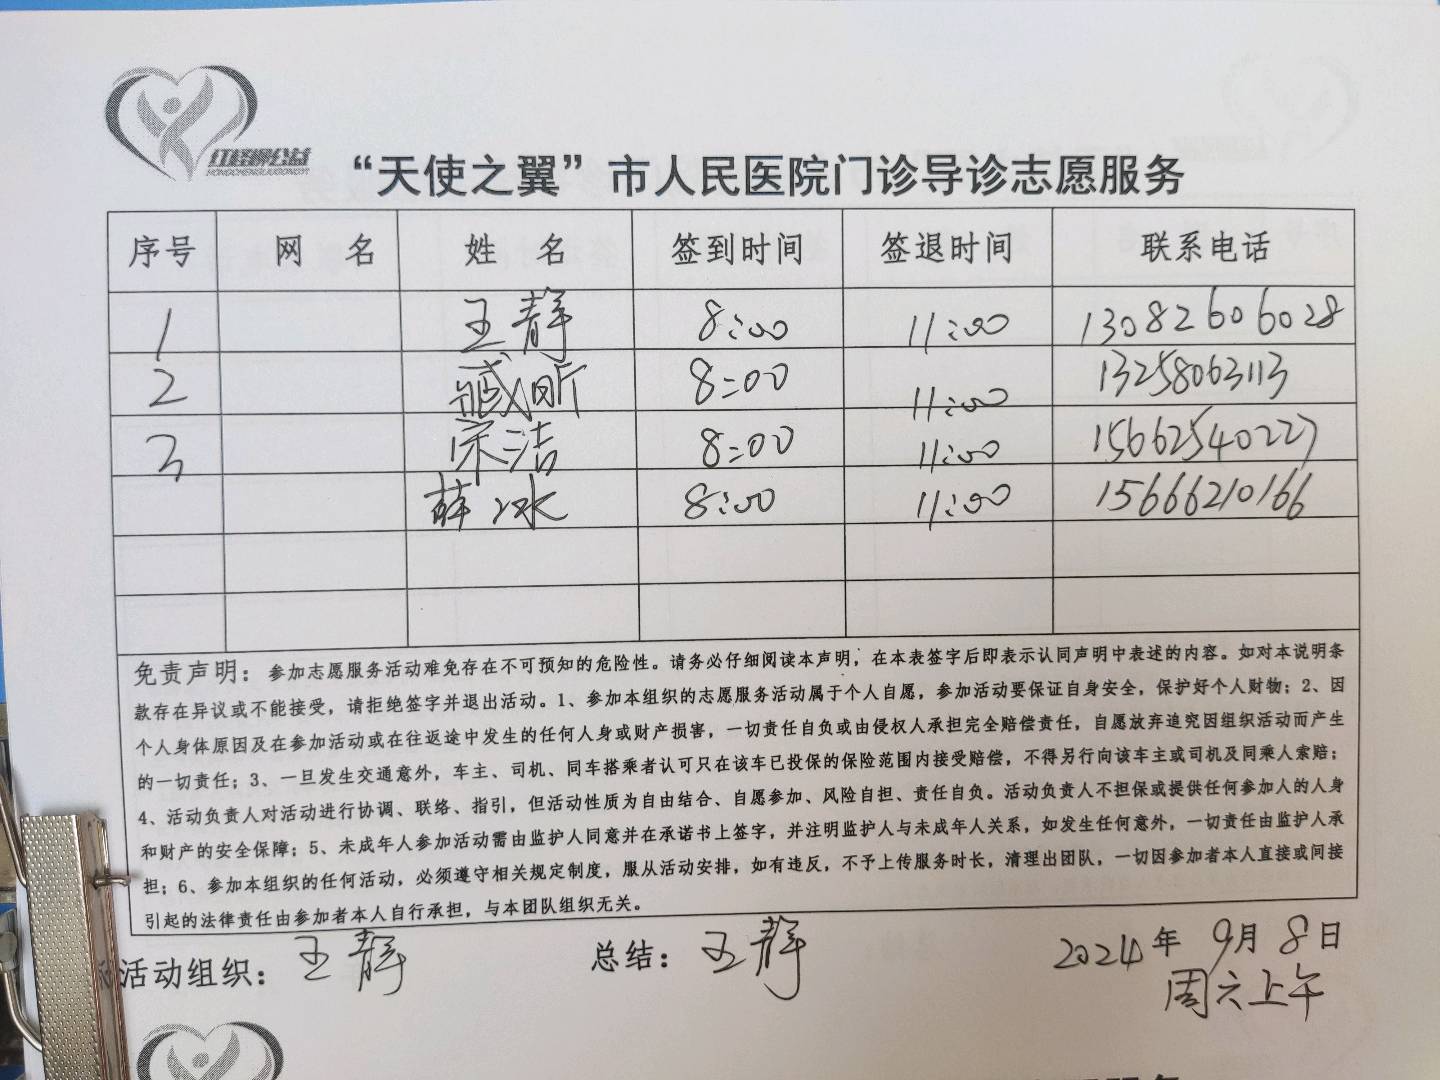 红柽柳公益
HONGCHENGLIUGONGYI
“天使之翼”市人民医院门诊导诊志愿服务
序号 网 名 姓 名 签到时间 签退时间 联系电话
1 王静 8:00 11:00 13082606028
2 臧昕 8:00 11:00 13258063113
3 宗洁 8:00 11:00 15662540227
薛冰 8:00 11:00 15666210166
免责声明：参加志愿服务活动难免存在不可预知的危险性。请务必仔细阅读本声明，在本表签字后即表示认同声明中表述的内容。如对本说明条
款存在异议或不能接受，请拒绝签字并退出活动。1、参加本组织的志愿服务活动属于个人自愿，参加活动要保证自身安全，保护好个人财物；2、因
个人身体原因及在参加活动或在往返途中发生的任何人身或财产损害，一切责任自负或由侵权人承担完全赔偿责任，自愿放弃追究因组织活动而产生
的一切责任；3、一旦发生交通意外，车主、司机、同车搭乘者认可只在该车已投保的保险范围内接受赔偿，不得另行向该车主或司机及同乘人索赔；
4、活动负责人对活动进行协调、联络、指引，但活动性质为自由结合、自愿参加、风险自担、责任自负。活动负责人不担保或提供任何参加人的人身
和财产的安全保障；5、未成年人参加活动需由监护人同意并在承诺书上签字，并注明监护人与未成年人关系，如发生任何意外，一切责任由监护人承
担；6、参加本组织的任何活动，必须遵守相关规定制度，服从活动安排，如有违反，不予上传服务时长，清理出团队，一切因参加者本人直接或间接
引起的法律责任由参加者本人自行承担，与本团队组织无关。
活动组织：王静 总结：王静 2024年 9月 8日
周六上午